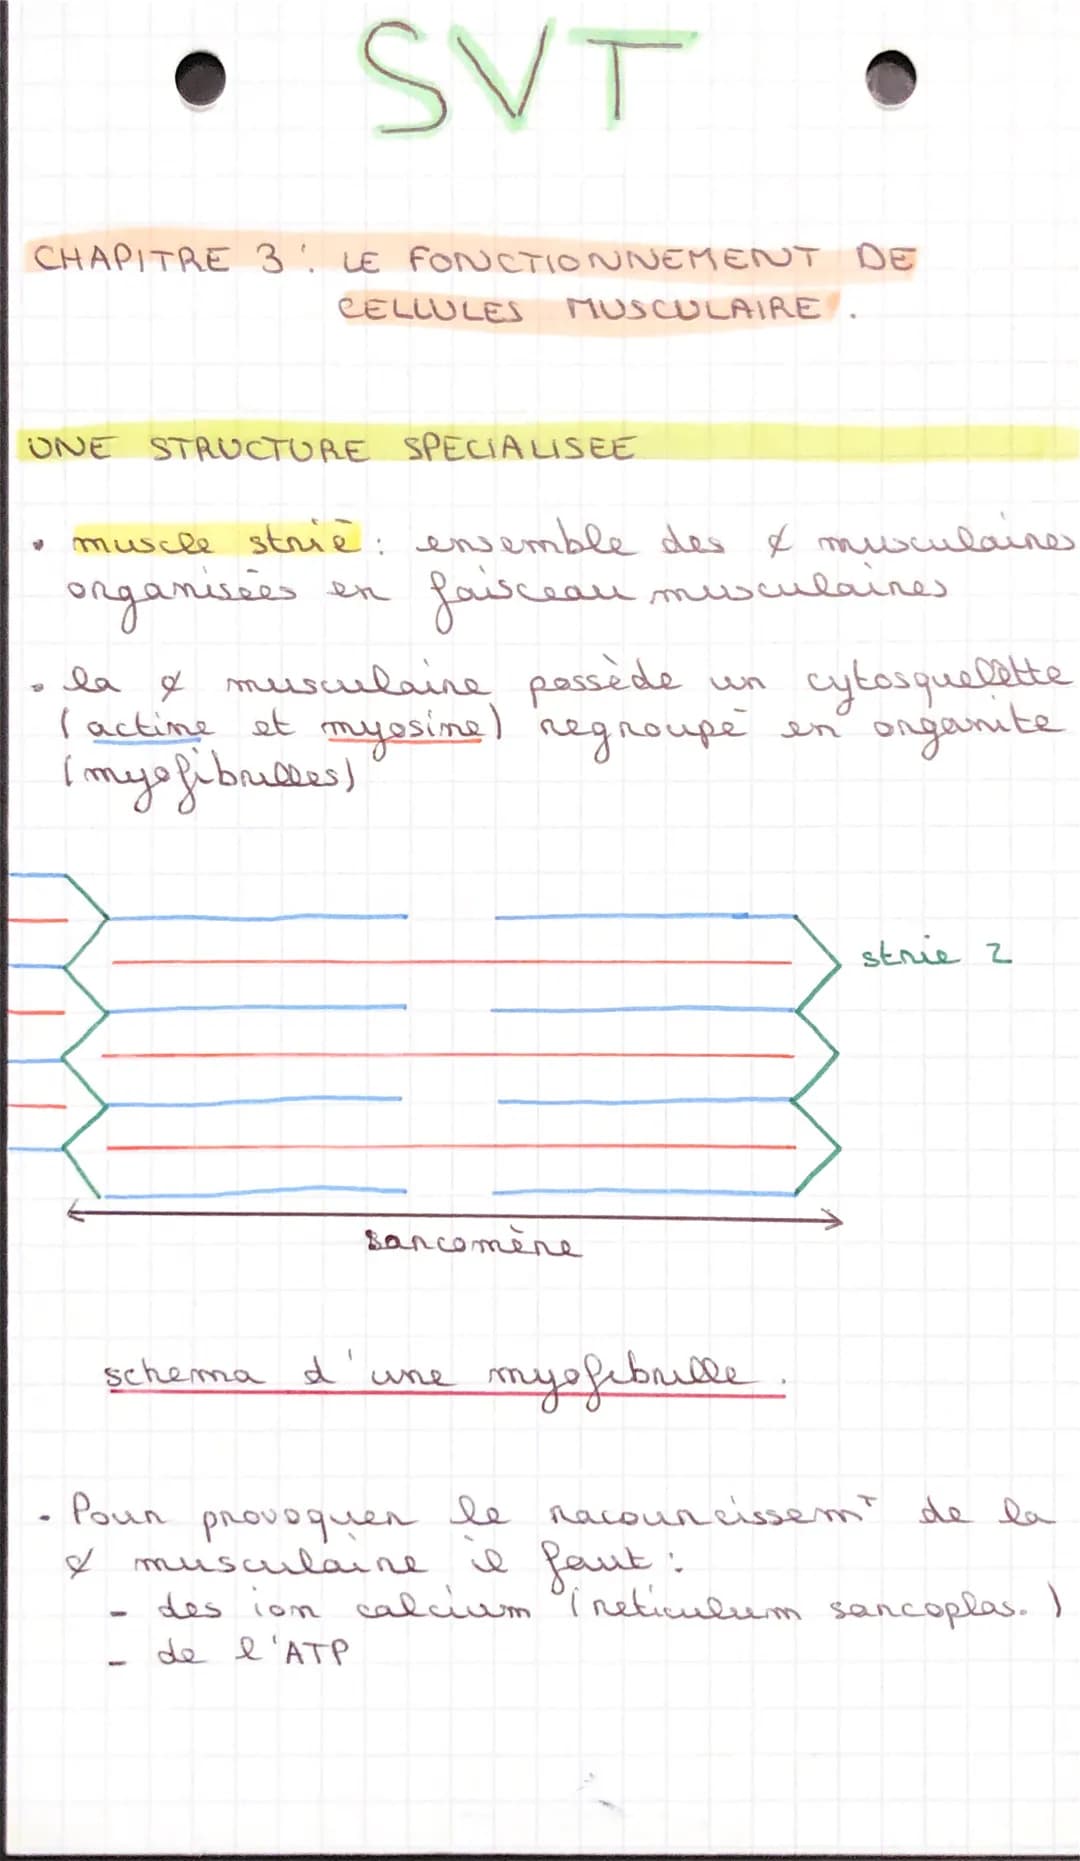 SVT
CHAPITRE 3 : LE FONCTIONNEMENT DE
CELLULES MUSCULAIRE.
UNE STRUCTURE SPECIALISEE
• muscle strié : ensemble des ¢ musculaires
organisées en faisceau musculaires
• la ¢ musculaire possède un cytosquelette
(actine et myosine) regroupé en organite
(myofibrilles)
strie Z
sarcomère
schema d'une myofibrille.
• Pour provoquer le racourcissemT de la
¢ musculaire il faut :
- des ion calcium (reticulum sarcoplas.)
- de l'ATP